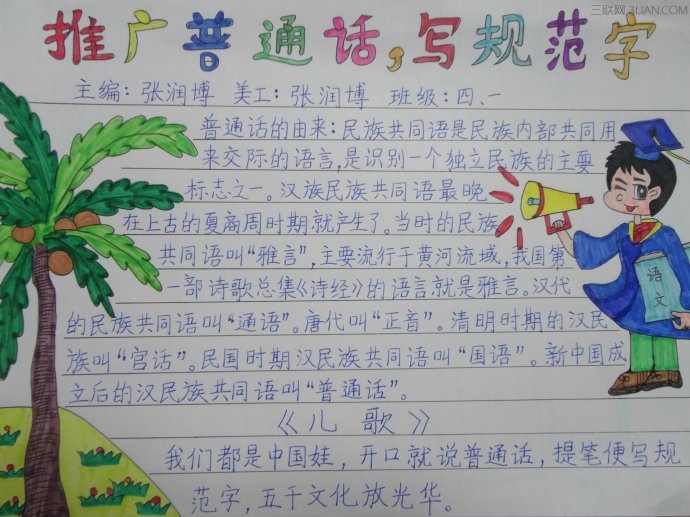 三联网 3LIAN.COM
推广普通话,写规范字
主编:张润博 美工:张润博 班级:四、一
普通话的由来:民族共同语是民族内部共同用
来交际的语言,是识别一个独立民族的主要
标志之一。汉族民族共同语最晚
在上古的夏商周时期就产生了。当时的民族
共同语叫“雅言”,主要流行于黄河流域,我国第
一部诗歌总集《诗经》的语言就是雅言。汉代
的民族共同语叫“通语”。唐代叫“正音”。清明时期的汉民
族叫“宫话”。民国时期汉民族共同语叫“国语”。新中国成
立后的汉民族共同语叫“普通话”。
《儿歌》
我们都是中国娃,开口就说普通话,提笔便写规
范字,五千文化放光华。
语文